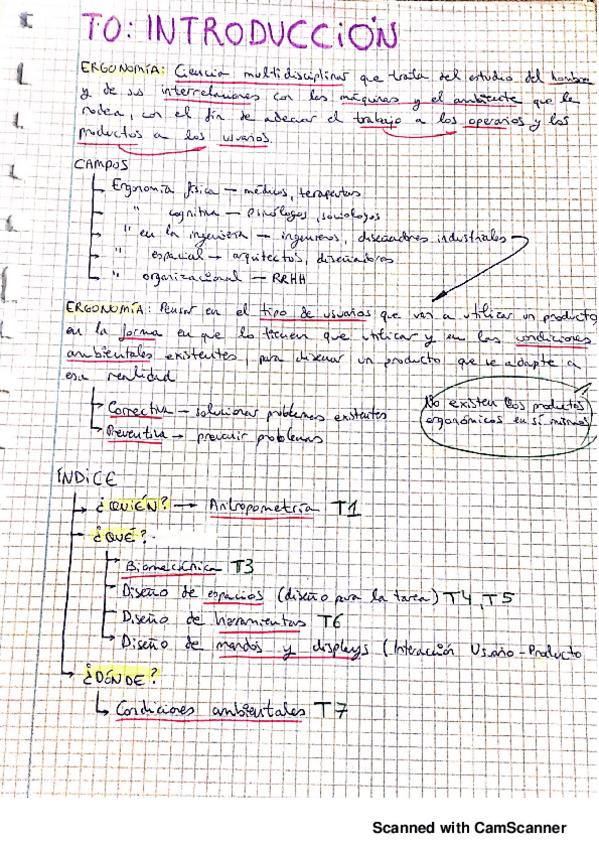 T0: INTRODUCCIÓN
ERGONOMÍA: Ciencia multidisciplinar que trata del estudio del hombre
y de sus interrelaciones con las máquinas y el ambiente que le
rodea, con el fin de adecuar el trabajo a los operarios y los
productos a los usuarios.
CAMPOS
Ergonomía física — médicos, terapeutas
" cognitiva — psicólogos, sociólogos
" en la ingeniería — ingenieros, diseñadores industriales
" espacial — arquitectos, diseñadores
" organizacional — RRHH
ERGONOMÍA: Pensar en el tipo de usuarios que van a utilizar un producto
en la forma en que lo tienen que utilizar y en las condiciones
ambientales existentes, para diseñar un producto que se adapte a
esa realidad
Correctiva — solucionar problemas existentes
Preventiva → prevenir problemas
No existen los productos
ergonómicos en sí mismos
ÍNDICE
¿QUIÉN? → Antropometría T1
¿QUÉ?
Biomecánica T3
Diseño de espacios (diseño para la tarea) T4, T5
Diseño de herramientas T6
Diseño de mandos y displays (Interacción Usuario-Producto
¿DÓNDE?
Condiciones ambientales T7
Scanned with CamScanner